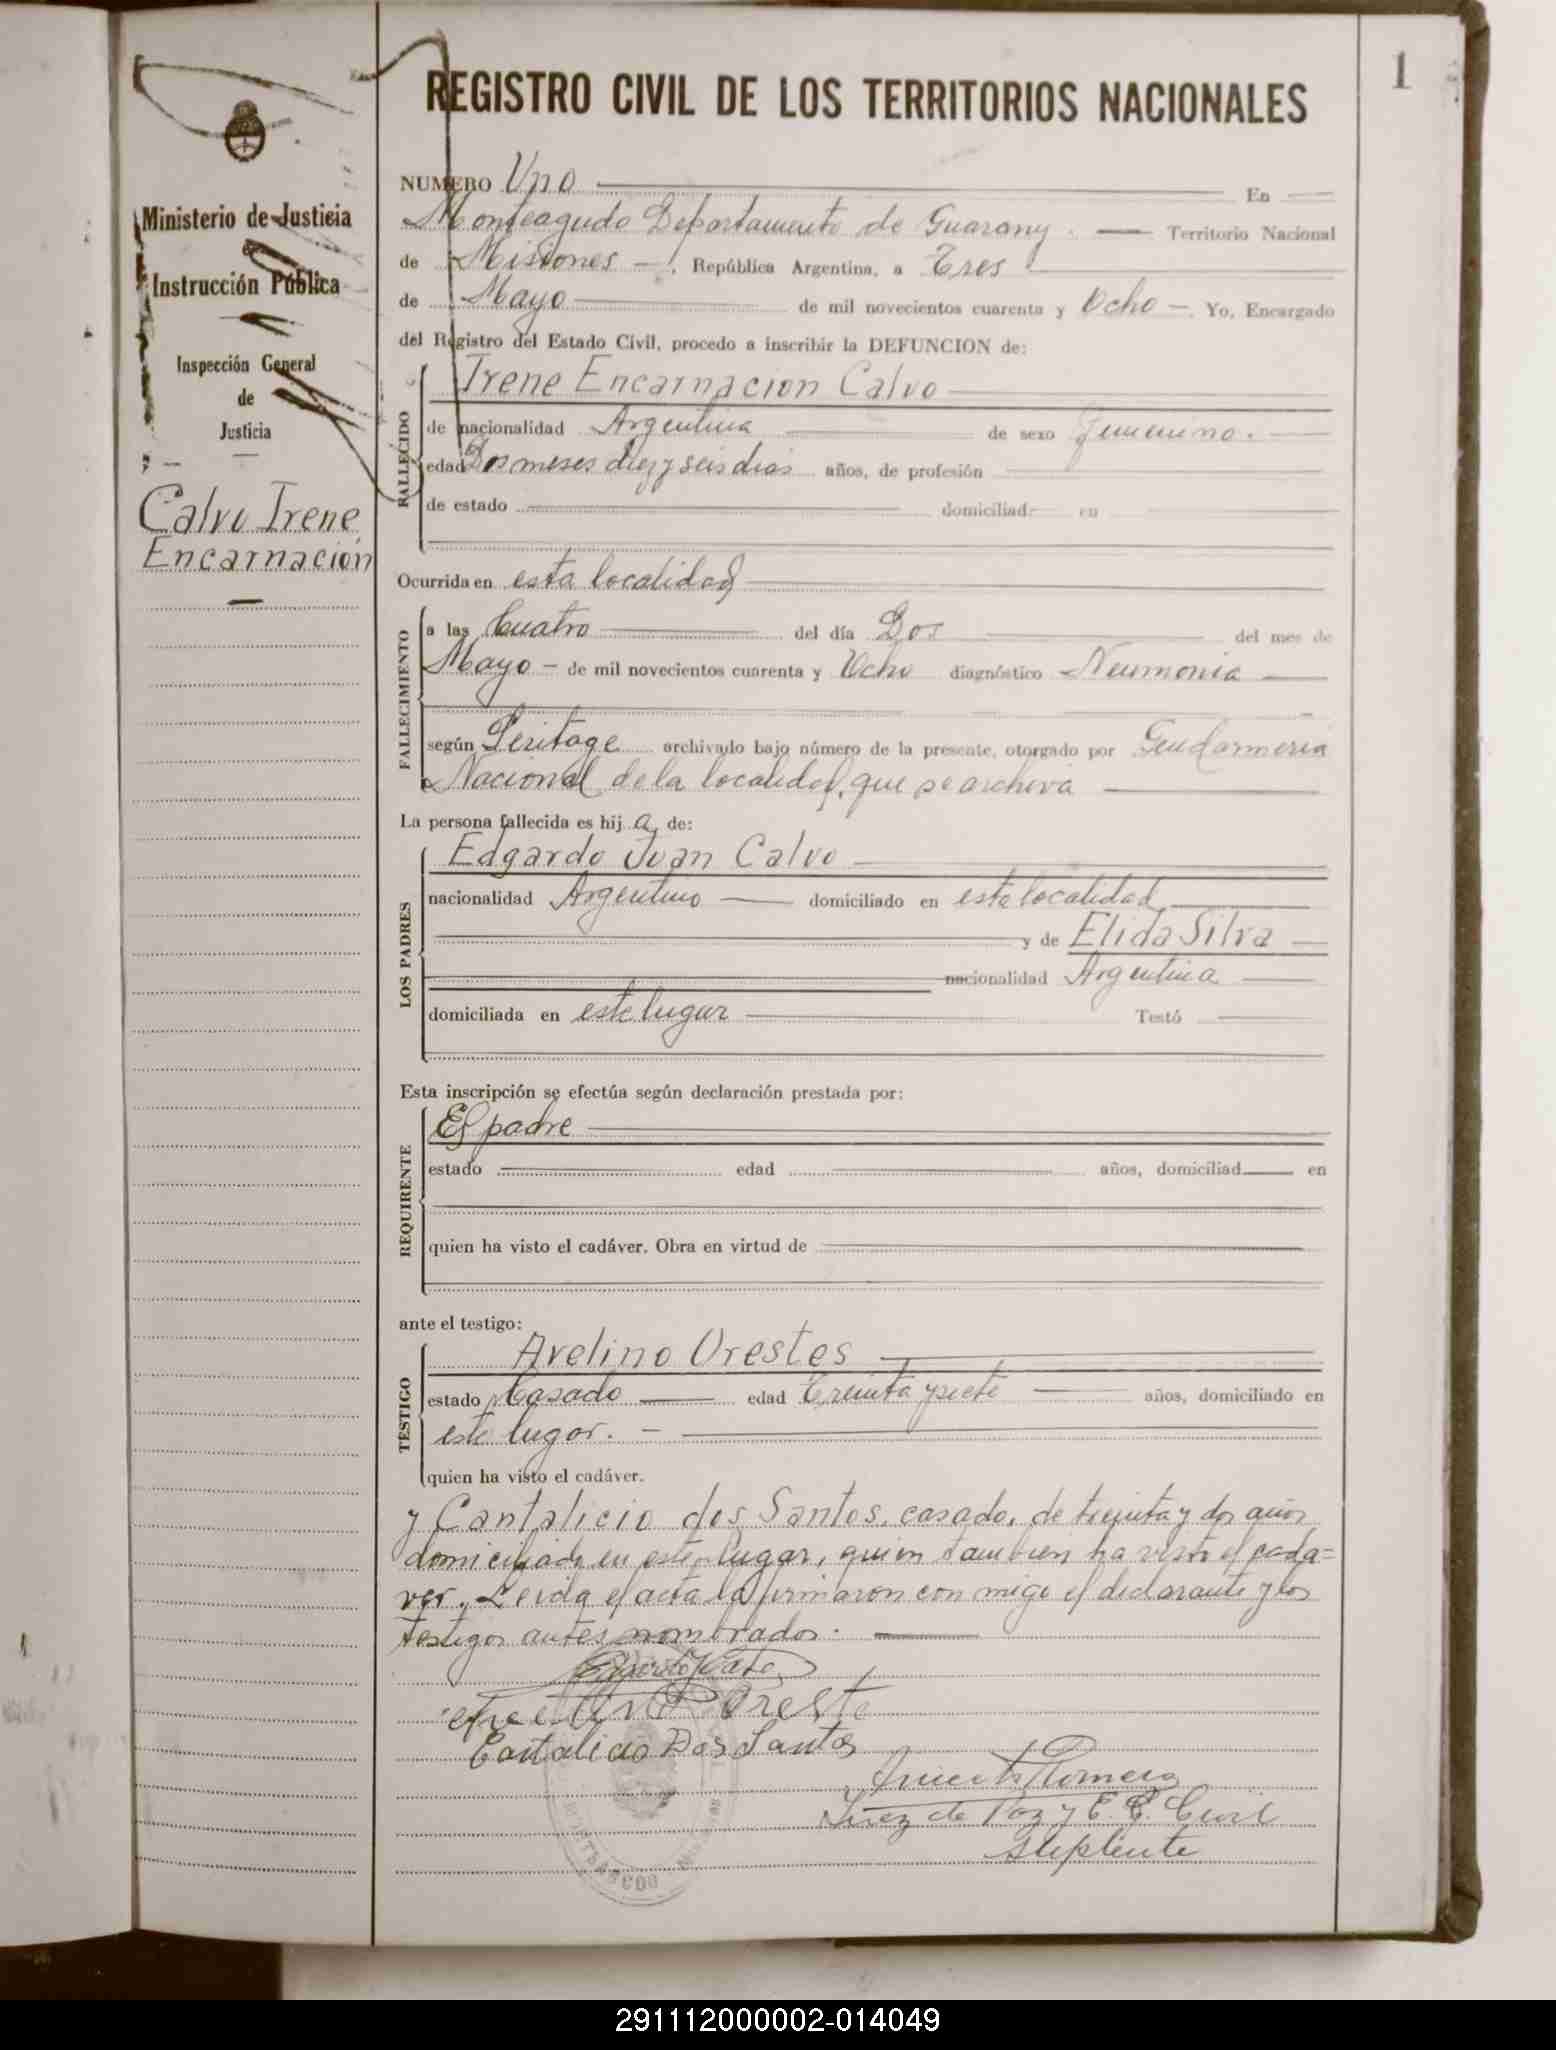 1
REGISTRO CIVIL DE LOS TERRITORIOS NACIONALES
Ministerio de Justicia
Instrucción Pública
Inspección General
de
Justicia
Calvo Irene
Encarnación
NUMERO Uno En
Monteagudo Departamento de Guarany. Territorio Nacional
de Misiones, República Argentina, a Tres
de Mayo de mil novecientos cuarenta y Ocho. Yo, Encargado
del Registro del Estado Civil, procedo a inscribir la DEFUNCION de:
FALLECIDO
Irene Encarnacion Calvo
de nacionalidad Argentina de sexo femenino.
edad Dos meses diez y seis dias años, de profesión
de estado domiciliad en
Ocurrida en esta localidad
FALLECIMIENTO
a las Cuatro del día Dos del mes de
Mayo de mil novecientos cuarenta y Ocho diagnóstico Neumonia
según Peritage archivado bajo número de la presente, otorgado por Gendarmeria
Nacional de la localidad, que se archiva
La persona fallecida es hij a de:
LOS PADRES
Edgardo Juan Calvo
nacionalidad Argentino domiciliado en esta localidad
y de Elida Silva
nacionalidad Argentina
domiciliada en este lugar Testó
Esta inscripción se efectúa según declaración prestada por:
REQUIRENTE
El padre
estado edad años, domiciliad en
quien ha visto el cadáver. Obra en virtud de
ante el testigo:
TESTIGO
Avelino Orestes
estado Casado edad Treinta y siete años, domiciliado en
este lugar.
quien ha visto el cadáver.
y Cantalicio dos Santos, casado, de treinta y dos años
domiciliado en este lugar, quien tambien ha visto el cada=
ver. Leida el acta la firmaron con migo el declarante y los
testigos antes nombrados.
Oreste
Cantalicio Dos Santos
Romero
Juez de Paz y E. R. Civil
suplente
291112000002-014049